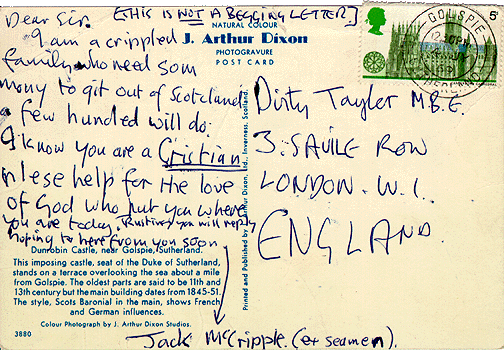 Dear Sir. [THIS IS NOT A BEGGING LETTER.]
NATURAL COLOUR
J. Arthur Dixon
PHOTOGRAVURE
POST CARD
I am a crippled
family who need som
mony to git out of Scotcland
a few hundred will do.
I know you are a Cristian
plese help for the love
of God who put you where
you are today. Trusting you will reply
hoping to here from you soon
Jack McCripple. (ex seamen).
Dunrobin Castle, near Golspie, Sutherland.
This imposing castle, seat of the Duke of Sutherland,
stands on a terrace overlooking the sea about a mile
from Golspie. The oldest parts are said to be 11th and
13th century but the main building dates from 1845-51.
The style, Scots Baronial in the main, shows French
and German influences.
Colour Photograph by J. Arthur Dixon Studios.
3880
Printed and Published by J. Arthur Dixon, Ltd., Inverness, Scotland.
Dirty Tayler M.B.E.
3. SAVILE ROW
LONDON. W.1.
ENGLAND
GOLSPIE
5